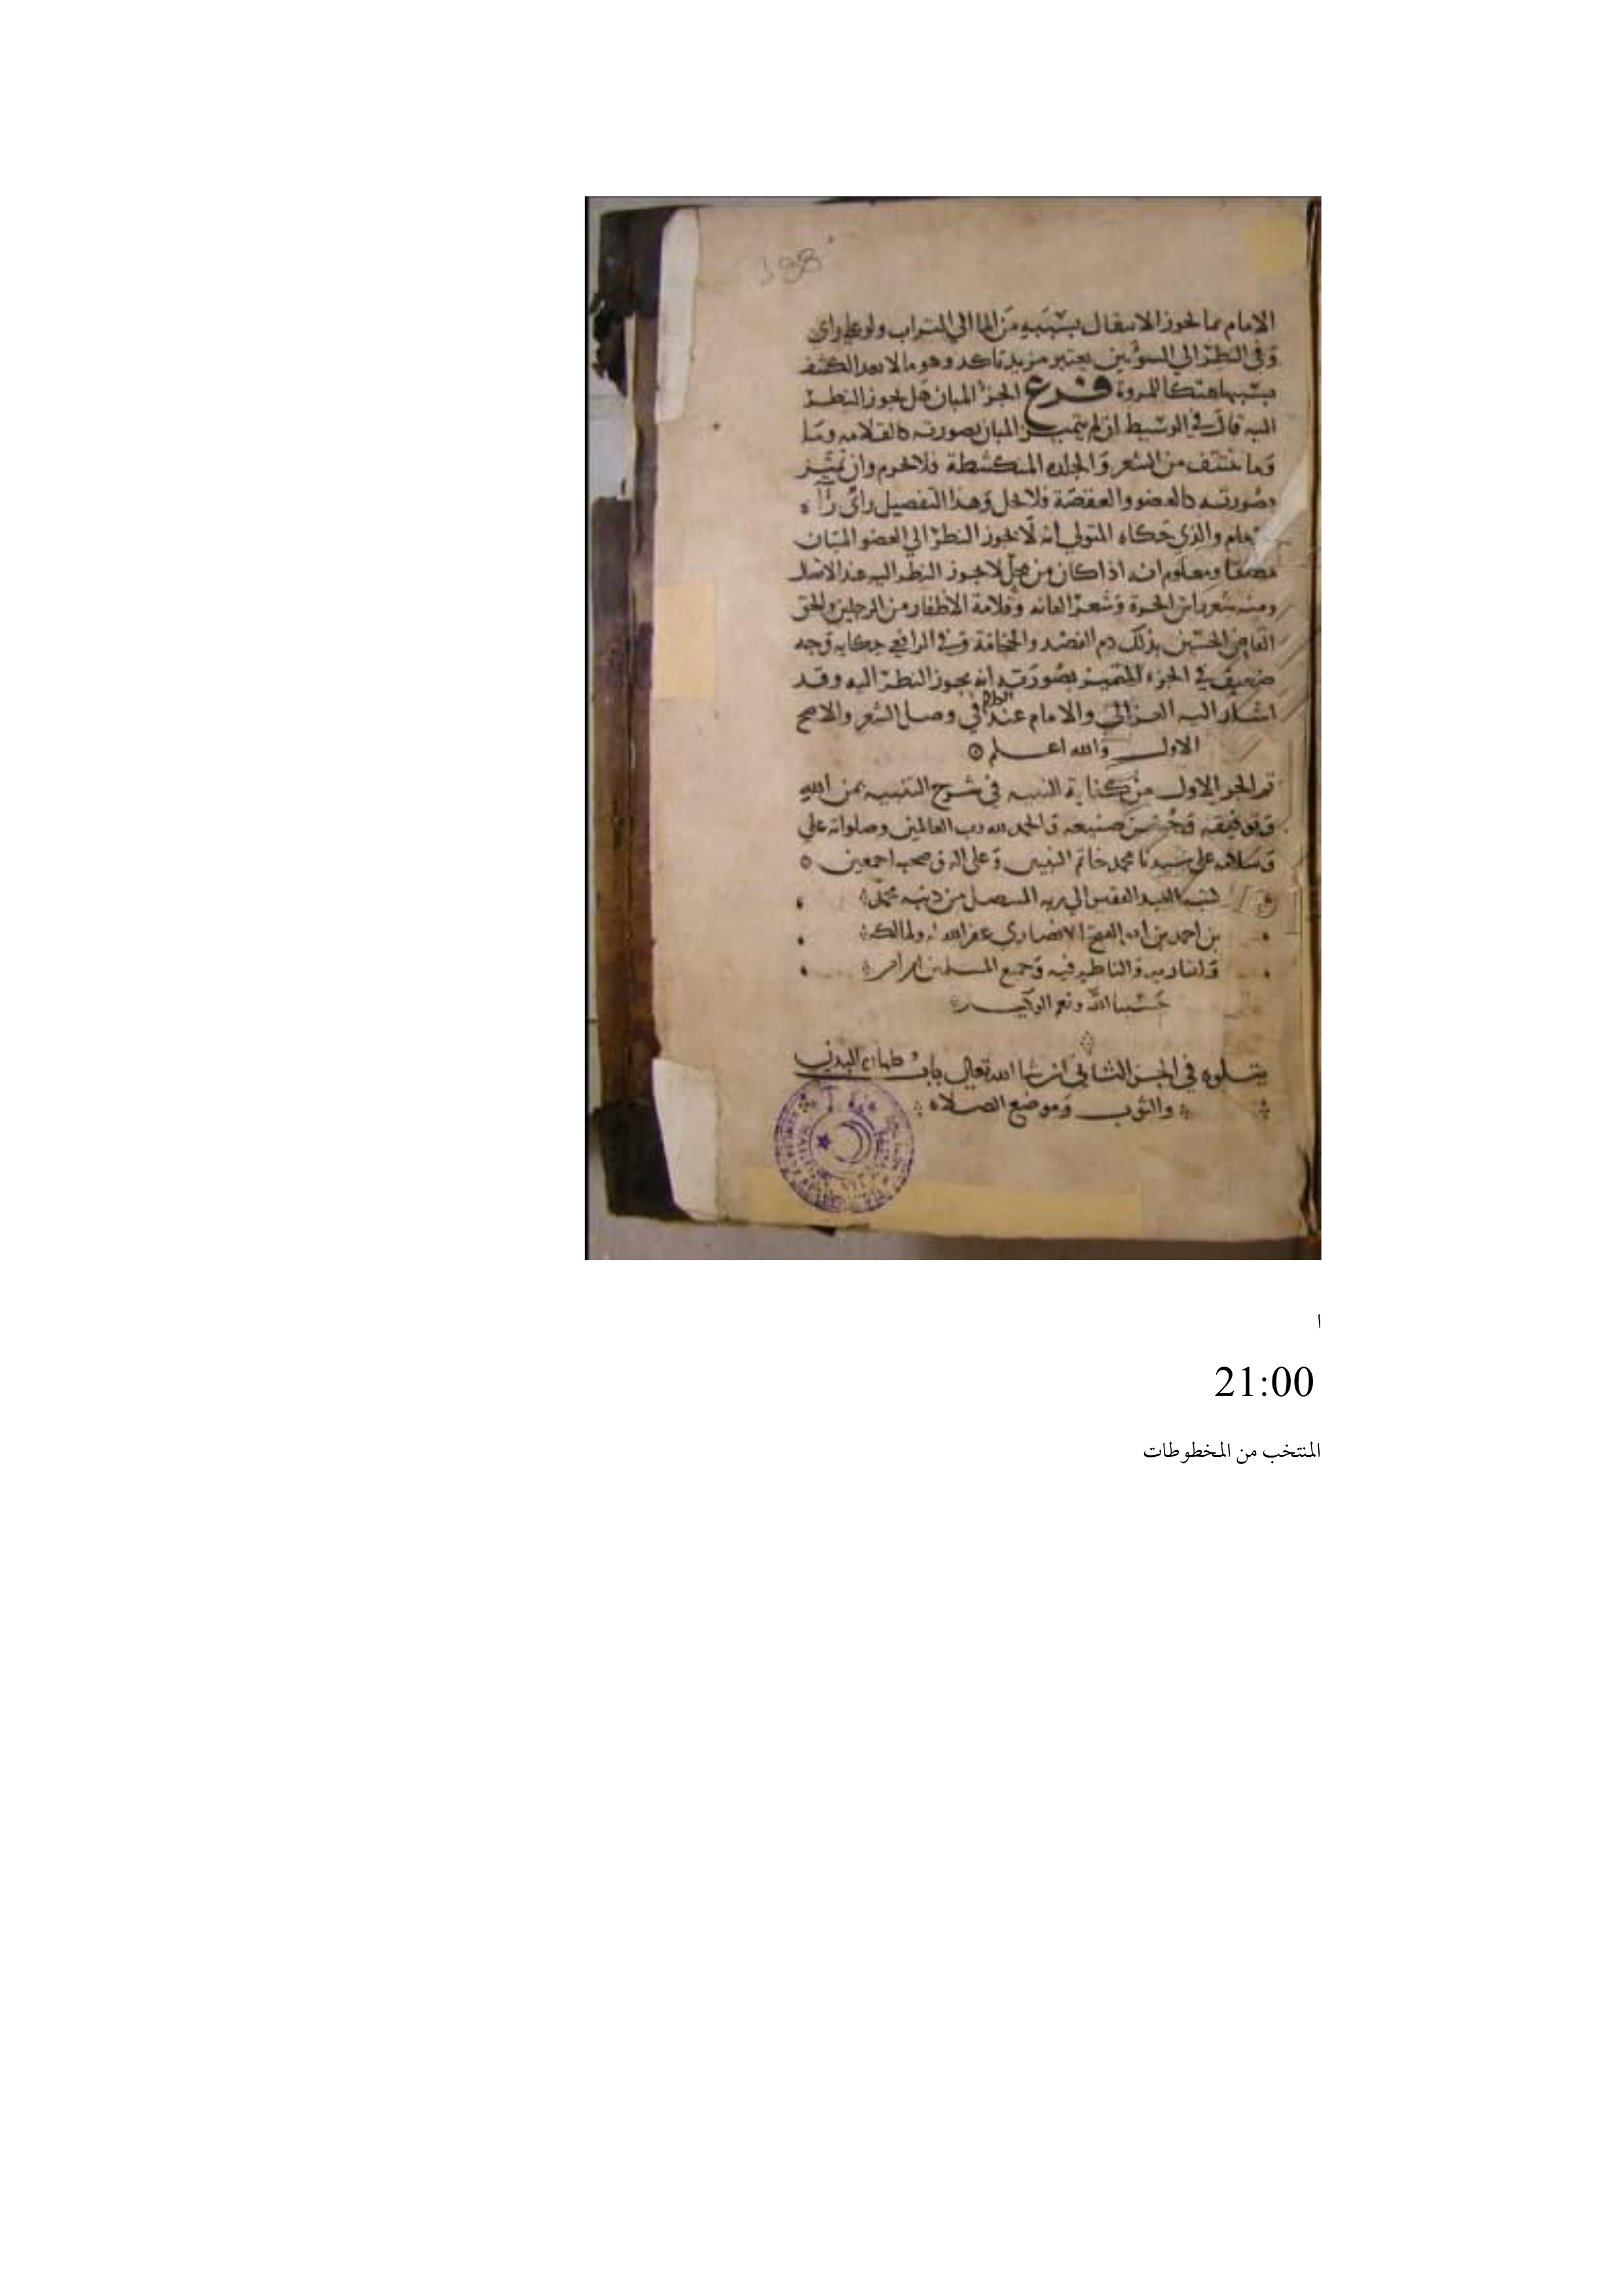 388
الامام بما يجوز الانتقال بسببه من الماء الى التراب ولو على رأي
وفي النظر الى السوءتين يعتبر مزيد تاكد وهو ما لا يعد الكشف
بسببها هتكا للمروة فرع الجزء المبان هل يجوز النظر
اليه قال في الوسيط ان لم يتميز المبان بصورته كالقلامة وما
وما ينتف من الشعر والجلدة المنكشطة فلا يحرم وان تميز
بصورته كالعضو والعقصة فلا يحل وهذا التفصيل رأي رآه
والذي حكاه المتولي انه لا يجوز النظر الى العضو المبان
ومعلوم انه اذا كان من محل لا يجوز النظر اليه عند الاتصال
ومنه شعر راس الحرة وشعر العانة وقلامة الاظفار من الرجلين والحق
القاضي الحسين بذلك دم الفصد والحجامة وفي الرافعي حكاية وجه
ضعيف في الجزء المتميز بصورته انه يجوز النظر اليه وقد
اشار اليه الغزالي والامام عند الكلام في وصل الشعر والاصح
الاول والله اعلم
تم الجزء الاول من كفاية النبيه في شرح التنبيه بمن الله
وتوفيقه وحسن صنيعه والحمد لله رب العالمين وصلواته على
وسلامه على سيدنا محمد خاتم النبيين وعلى اله وصحبه اجمعين
كتبه العبد الفقير الى ربه المتنصل من ذنبه محمد
بن احمد بن ابي الفتح الانصاري غفر الله له ولمالكه
ولقاريه والناظر فيه وجميع المسلمين
حسبنا الله ونعم الوكيل
يتلوه في الجزء الثاني ان شا الله تعالى باب طهارة البدن
والثوب وموضع الصلاة
ا
21:00
المنتخب من المخطوطات